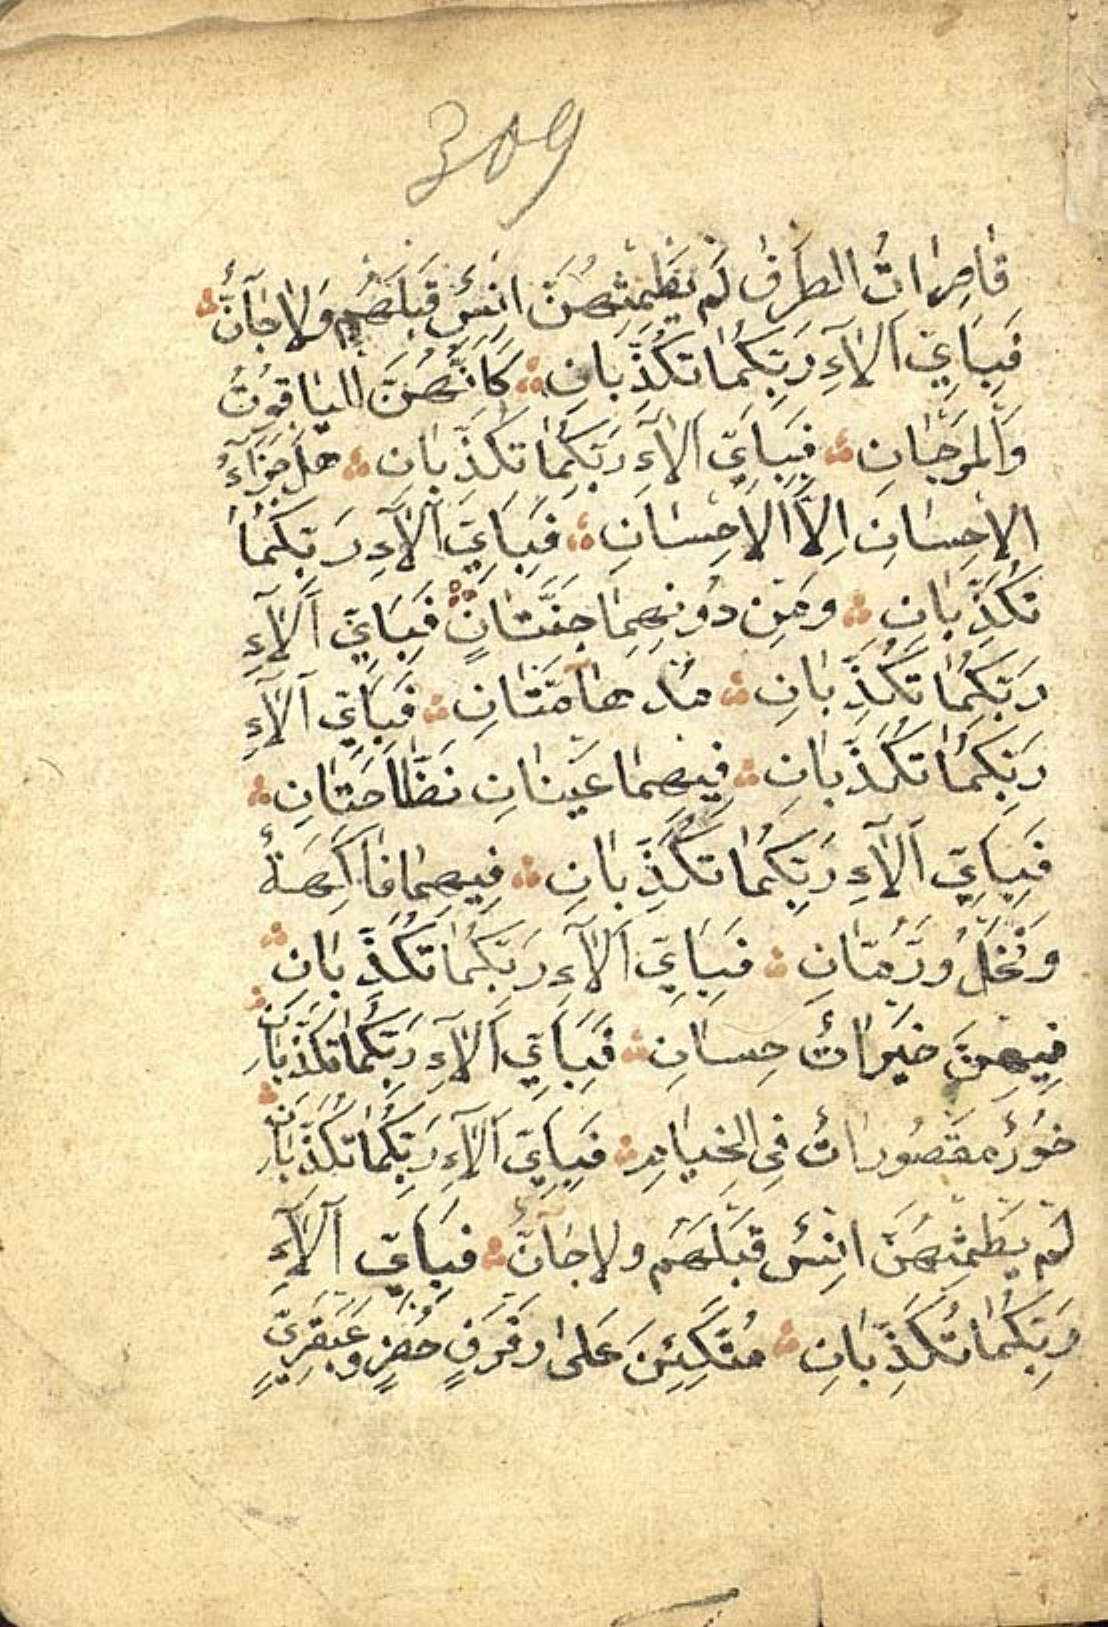 309
قَاصِرَاتُ الطَّرْفِ لَمْ يَطْمِثْهُنَّ اِنْسٌ قَبْلَهُمْ وَلَا جَآنٌّ
فَبِاَيِّ اٰلَآءِ رَبِّكُمَا تُكَذِّبَانِ كَاَنَّهُنَّ الْيَاقُوتُ
وَالْمَرْجَانِ فَبِاَيِّ اٰلَآءِ رَبِّكُمَا تُكَذِّبَانِ هَلْ جَزَآءُ
الْاِحْسَانِ اِلَّا الْاِحْسَانِ فَبِاَيِّ اٰلَآءِ رَبِّكُمَا
تُكَذِّبَانِ وَمِنْ دُونِهِمَا جَنَّتَانِ فَبِاَيِّ اٰلَآءِ
رَبِّكُمَا تُكَذِّبَانِ مُدْهَآمَّتَانِ فَبِاَيِّ اٰلَآءِ
رَبِّكُمَا تُكَذِّبَانِ فِيهِمَا عَيْنَانِ نَضَّاخَتَانِ
فَبِاَيِّ اٰلَآءِ رَبِّكُمَا تُكَذِّبَانِ فِيهِمَا فَاكِهَةٌ
وَنَخْلٌ وَرُمَّانٌ فَبِاَيِّ اٰلَآءِ رَبِّكُمَا تُكَذِّبَانِ
فِيهِنَّ خَيْرَاتٌ حِسَانٌ فَبِاَيِّ اٰلَآءِ رَبِّكُمَا تُكَذِّبَانِ
حُورٌ مَقْصُورَاتٌ فِي الْخِيَامِ فَبِاَيِّ اٰلَآءِ رَبِّكُمَا تُكَذِّبَانِ
لَمْ يَطْمِثْهُنَّ اِنْسٌ قَبْلَهُمْ وَلَا جَآنٌّ فَبِاَيِّ اٰلَآءِ
رَبِّكُمَا تُكَذِّبَانِ مُتَّكِئِينَ عَلٰى رَفْرَفٍ خُضْرٍ وَعَبْقَرِيٍّ